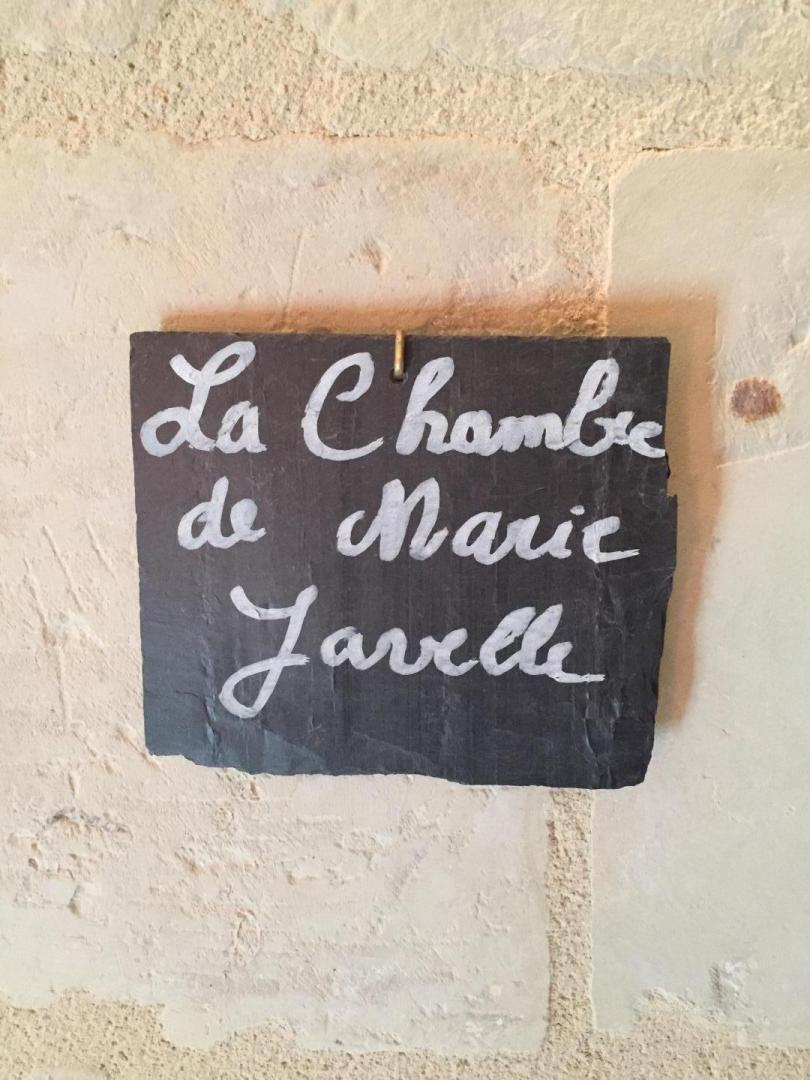 La Chambre
de Marie
Javelle